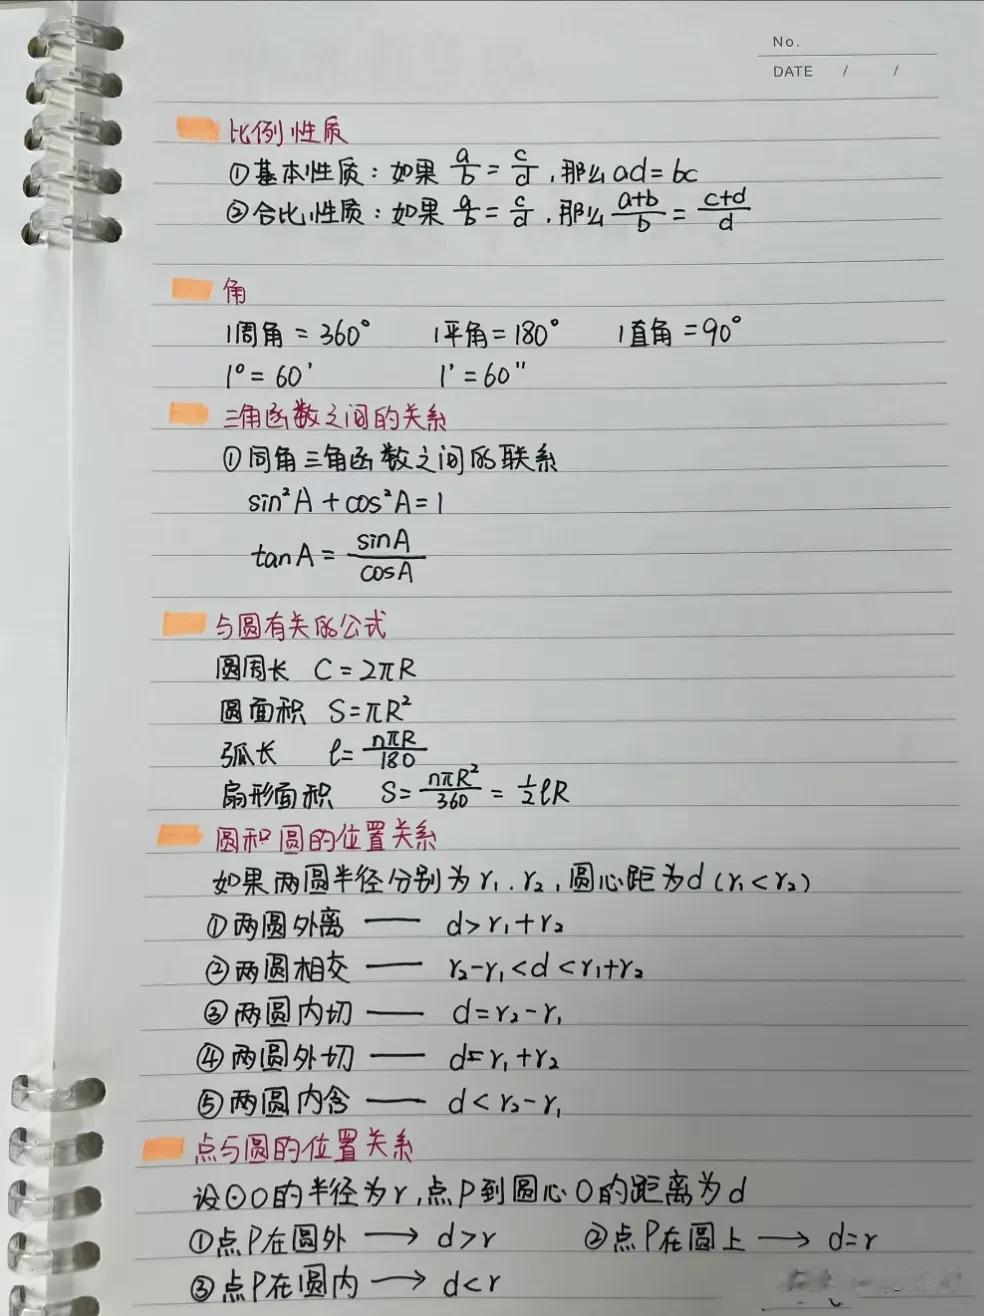 No.
DATE / /
比例性质
①基本性质：如果 a/b = c/d，那么 ad=bc
②合比性质：如果 a/b = c/d，那么 (a+b)/b = (c+d)/d
角
1周角=360° 1平角=180° 1直角=90°
1°=60′ 1′=60″
三角函数之间的关系
①同角三角函数之间的联系
sin²A+cos²A=1
tanA= sinA/cosA
与圆有关的公式
圆周长 C=2πR
圆面积 S=πR²
弧长 ℓ= nπR/180
扇形面积 S= nπR²/360 = 1/2 ℓR
圆和圆的位置关系
如果两圆半径分别为r₁.r₂，圆心距为d（r₁<r₂）
①两圆外离 —— d>r₁+r₂
②两圆相交 —— r₂-r₁<d<r₁+r₂
③两圆内切 —— d=r₂-r₁
④两圆外切 —— d=r₁+r₂
⑤两圆内含 —— d<r₂-r₁
点与圆的位置关系
设⊙O的半径为r，点P到圆心O的距离为d
①点P在圆外 → d>r ②点P在圆上 → d=r
③点P在圆内 → d<r